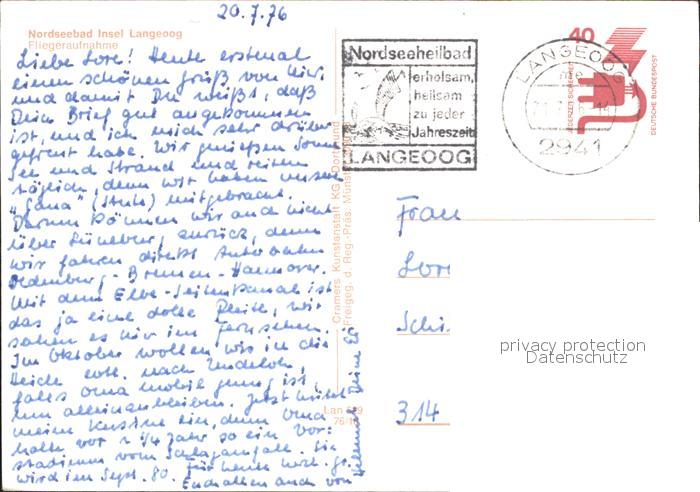 20.7.76
Nordseebad Insel Langeoog
Fliegeraufnahme
Liebe Lore! Heute erstmal
einen schönen Gruß von hier
und damit Du weißt, daß
Dein Brief gut angekommen
ist, und ich mich sehr darüber
gefreut habe. Wir genießen Sonne
See und Strand und reiten
täglich, denn wir haben unsere
"Jana" (Stute) mitgebracht.
Darum können wir auch nicht
über Lüneburg zurück, denn
wir fahren direkt Autobahn
Oldenburg - Bremen - Hannover.
Mit dem Elbe-Seitenkanal ist
das ja eine dolle Pleite, wir
sahen es hier im Fernsehen.
Im Oktober wollen wir in die
Heide evtl. nach Undeloh,
falls Oma mobil genug ist,
um alleinzubleiben. Jetzt hütet
meine Kusine ein, denn Oma
hatte vor 1/4 Jahr so ein Vor-
stadium vom Schlaganfall. Sie
wird im Sept. 80. Für heute herzl. Gr.
auch von
Hellmut Deine
Cramers Kunstanstalt KG, Dortmund
Freigeg. d. Reg.-Präs. Münster
Nordseeheilbad
erholsam,
heilsam
zu jeder
Jahreszeit
LANGEOOG
LANGEOOG
2941
40
JEDERZEIT SICHERHEIT
DEUTSCHE BUNDESPOST
Frau
314
privacy protection
Datenschutz